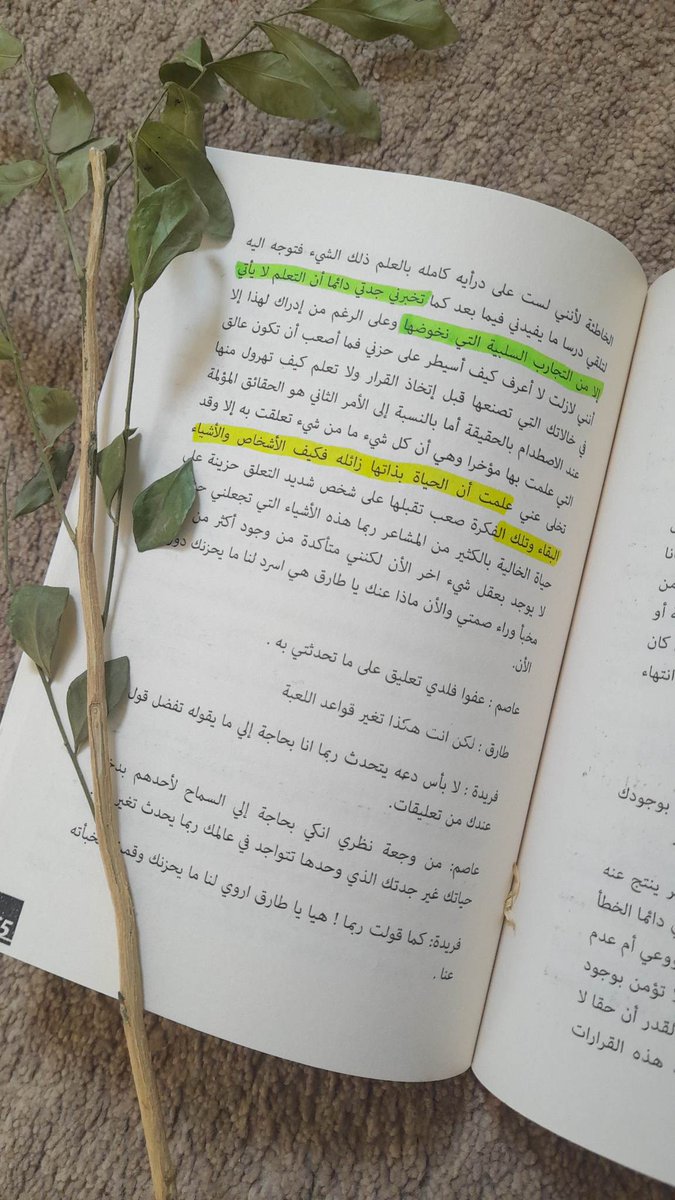 الخاطئة لأنني لست على درأيه كامله بالعلم ذلك الشيء فتوجه اليه
لتلقي درسا ما يفيدني فيما بعد كما تخبرني جدتي دائما أن التعلم لا يأتي
إلا من التجارب السلبية التي نخوضها وعلى الرغم من إدراك لهذا إلا
أنني لازلت لا أعرف كيف أسيطر على حزني فما أصعب أن تكون عالق
في خالاتك التي تصنعها قبل إتخاذ القرار ولا تعلم كيف تهرول منها
عند الاصطدام بالحقيقة أما بالنسبة إلى الأمر الثاني هو الحقائق المؤلمة
التي علمت بها مؤخرا وهي أن كل شيء ما من شيء تعلقت به إلا وقد
تخلى عني علمت أن الحياة بذاتها زائله فكيف الأشخاص والأشياء
البقاء وتلك الفكرة صعب تقبلها على شخص شديد التعلق حزينة على
حياة الخالية بالكثير من المشاعر ربما هذه الأشياء التي تجعلني
لا يوجد بعقل شيء اخر الأن لكنني متأكدة من وجود أكثر من
مخبأ وراء صمتي والأن ماذا عنك يا طارق هي اسرد لنا ما يحزنك
الأن.
عاصم : عفوا فلدي تعليق على ما تحدثتي به .
طارق : لكن انت هكذا تغير قواعد اللعبة
فريدة : لا بأس دعه يتحدث ربما انا بحاجة إلي ما يقوله تفضل قول
عندك من تعليقات.
عاصم: من وجعة نظري انكي بحاجة إلي السماح لأحدهم
حياتك غير جدتك الذي وحدها تتواجد في عالمك ربما يحدث
فريدة: كما قولت ربما ! هيا يا طارق اروي لنا ما يحزنك
عنا .
انا
من
ه أو
كان
انتهاء
بوجودك
ر ينتج عنه
ي دائما الخطأ
ووعي أم عدم
تؤمن بوجود
لقدر أن حقا لا
هذه القرارات